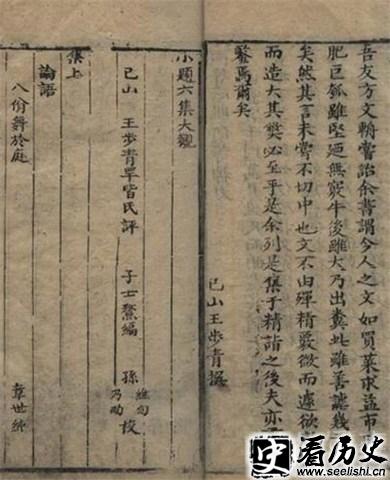 吾友方文輈嘗詒余書謂今人之文如買菜求益市
肥巨瓠雖堅廼無竅牛後雖大乃出糞此雖善謔幾
矣然其言未嘗不切中也文不由殫精覈微而遽欲
而造大其獘必至乎是余列是集于精詣之後夫亦
鑒焉爾矣
已山王步青撰
小題六集大觀
已山 王步青罕皆民評 子士鰲編 孫 維甸 乃昀 校
集上
論語
八佾舞於庭
章世純
史 看历史
www.seelishi.cn